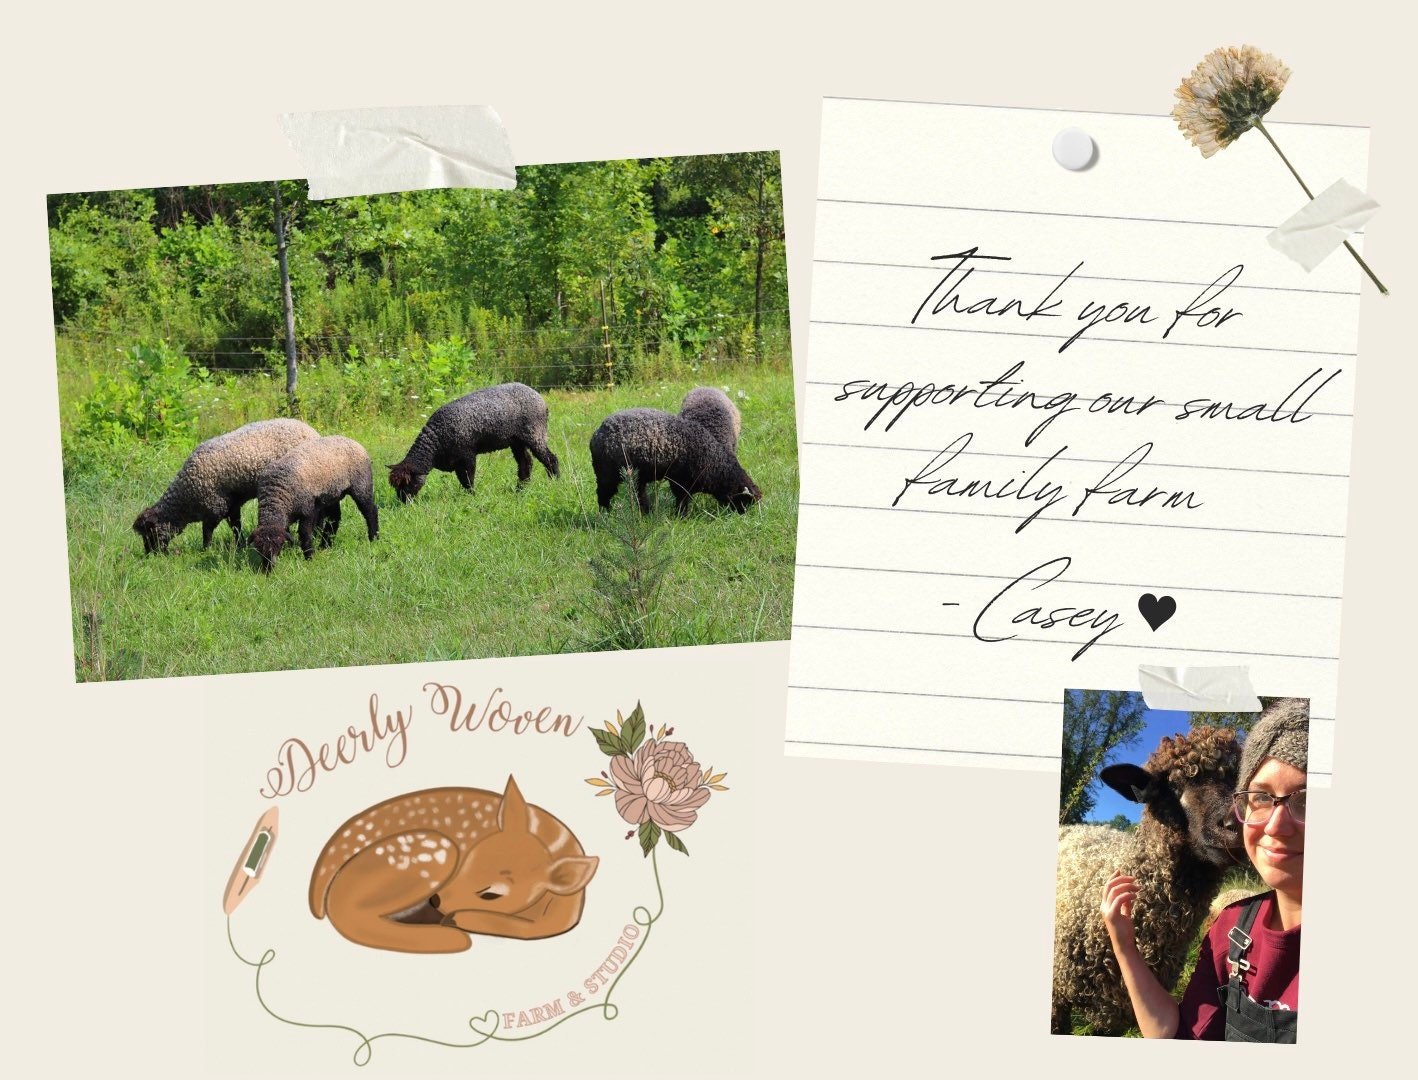 Thank you for
supporting our small
family farm
- Casey ♥
Deerly Woven
FARM & STUDIO